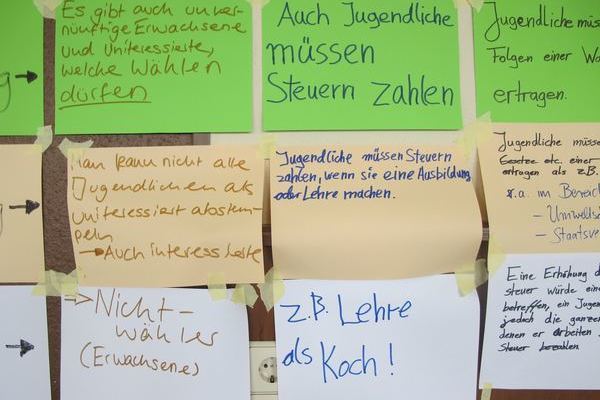 Es gibt auch unver-
nünftige Erwachsene
und Uniteressierte,
welche Wählen
dürfen
Auch Jugendliche
müssen
Steuern zahlen
Jugendliche müs
Folgen einer Wa
ertragen.
Man kann nicht alle
Jugendlichen als
uniteressiert abstem-
peln
→ Auch interessierte
Jugendliche müssen Steuern
zahlen, wenn sie eine Ausbildung
oder Lehre machen.
Jugendliche müsse
Gesetze etc. einer
ertragen als z.B.
z.a. im Bereich
- Umwelts
- Staatsve
⇒ Nicht-
wähler
(Erwachsene)
z.B. Lehre
als
Koch!
Eine Erhöhung d
steuer würde eine
betreffen, ein Jugen
jedoch die ganzen
denen er arbeiten
Steuer bezahlen